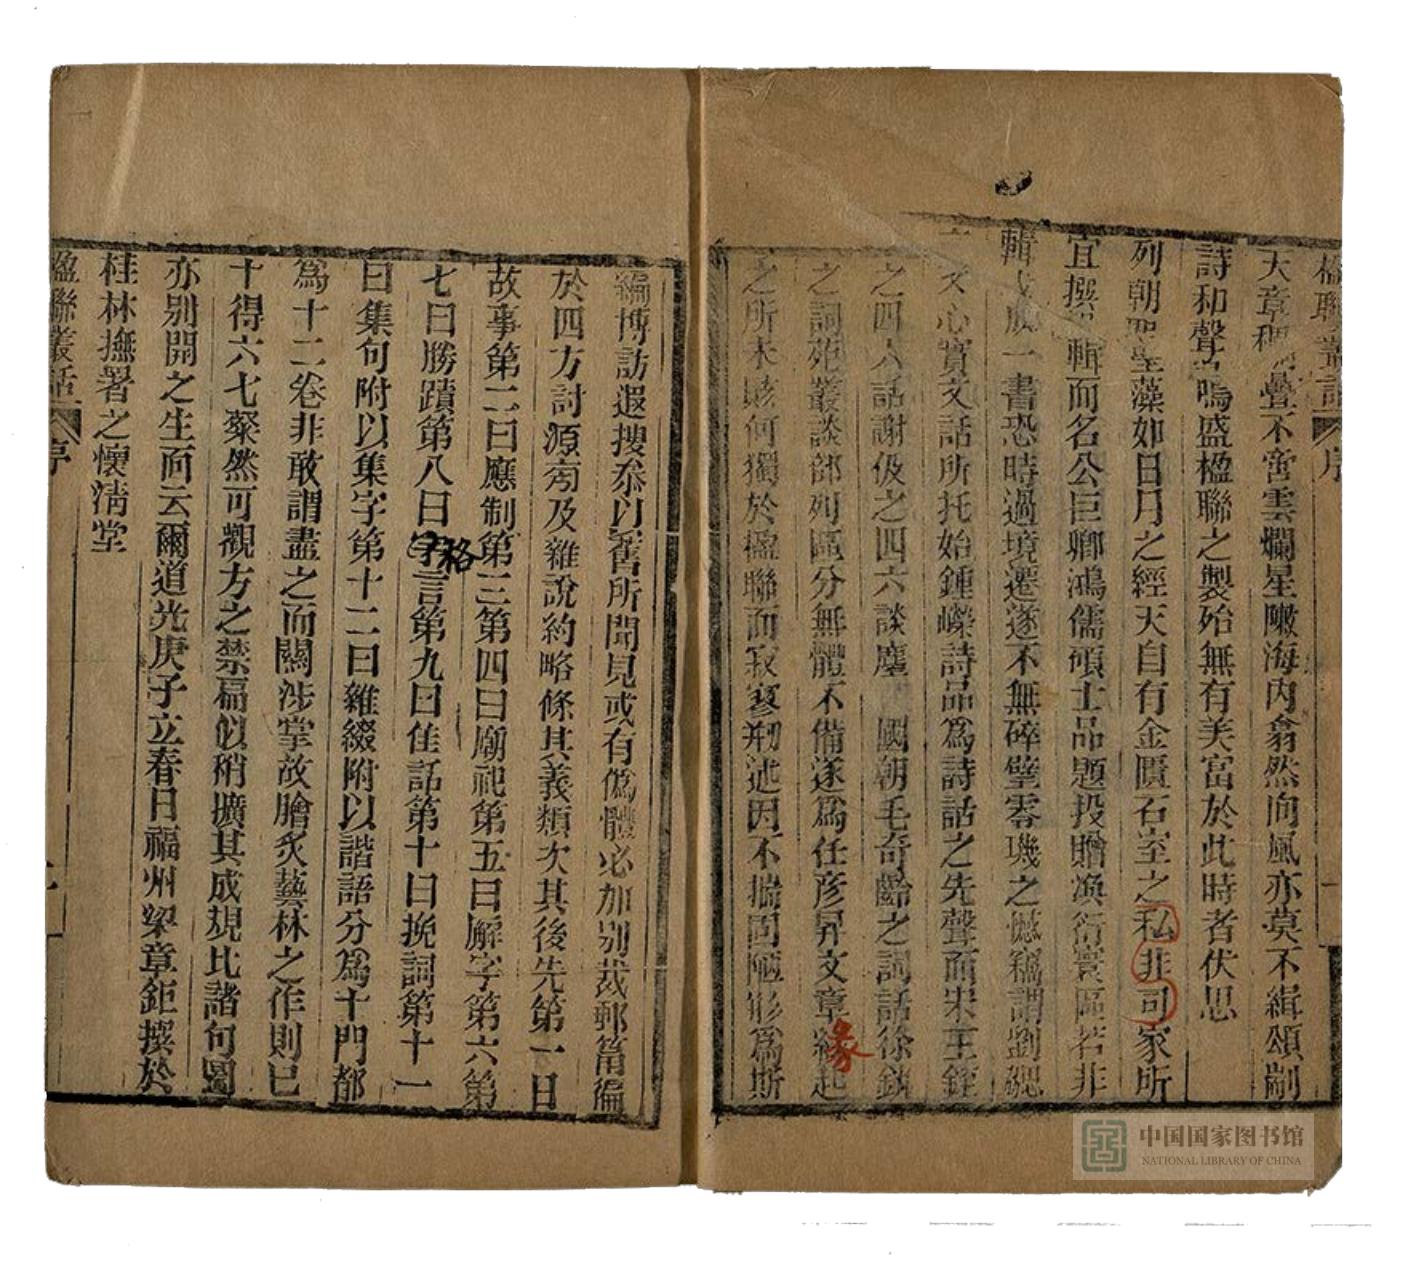 楹聯叢話 序 一
天章稠疊不啻雲爛星敶海內翕然向風亦莫不緝頌剬
詩和聲以鳴盛楹聯之製殆無有美富於此時者伏思
列朝聖藻如日月之經天自有金匱石室之私非司家所
宜撰輯而名公巨卿鴻儒碩士品題投贈渙衍寰區若非
輯成一書恐時過境遷遂不無碎璧零璣之憾竊謂劉勰
文心實文話所托始鍾嶸詩品為詩話之先聲而宋王銍
之四六話謝伋之四六談麈 國朝毛奇齡之詞話徐釚
之詞苑叢談部列區分無體不備遂爲任彥昇文章緣起
緣
之所未賅何獨於楹聯而寂寥述因不揣固陋為斯
編博訪遐搜叅以舊所聞見或有僞體必加別裁郵筩徧
於四方討源旁及雜說約略條其義類次其後先第一曰
故事第二曰應制第三第四曰廟祀第五曰廨宇第六第
七曰勝蹟第八曰字言第九曰佳話第十曰挽詞第十一
格
曰集句附以集字第十二曰雜綴附以諧語分爲十門都
爲十二卷非敢謂盡之而關涉掌故膾炙藝林之作則已
十得六七粲然可觀方之禁扁似稍擴其成規比諸句圖
亦別開之生面云爾道光庚子立春日福州梁章鉅撰於
桂林撫署之懷清堂
楹聯叢話 序
中国国家图书馆
NATIONAL LIBRARY OF CHINA